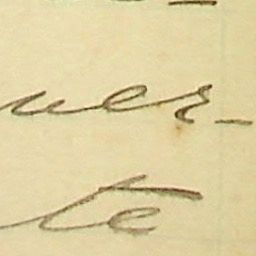 uer-
te